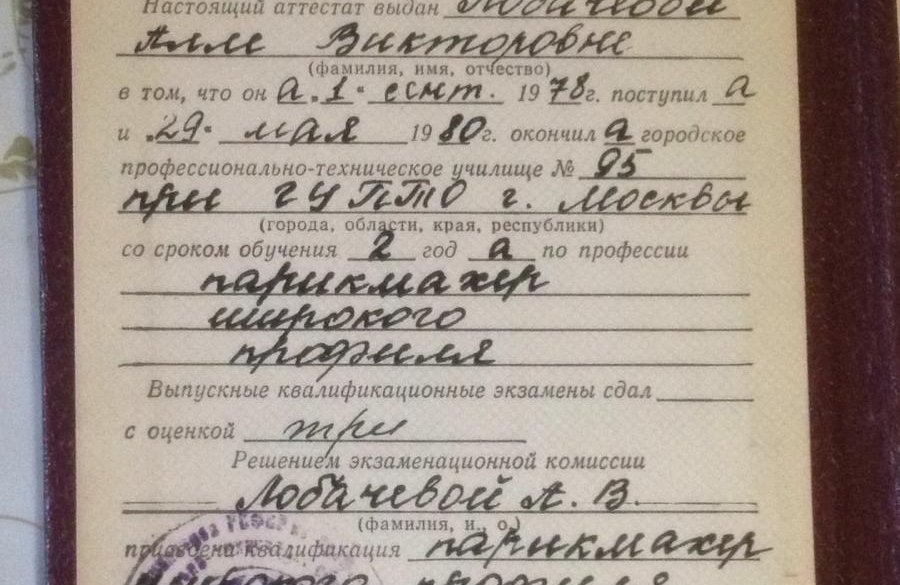 Настоящий аттестат выдан Лобачевой
Алле Викторовне
(фамилия, имя, отчество)
в том, что он а „1" сент. 1978г. поступил а
и „29" мая 1980г. окончил а городское
профессионально-техническое училище № 95
при ГУПТО г. Москвы
(города, области, края, республики)
со сроком обучения 2 год а по профессии
парикмахер
широкого
профиля
Выпускные квалификационные экзамены сдал
с оценкой три
Решением экзаменационной комиссии
Лобачевой А. В.
(фамилия, и., о.)
присвоена квалификация парикмахер
широкого профиля